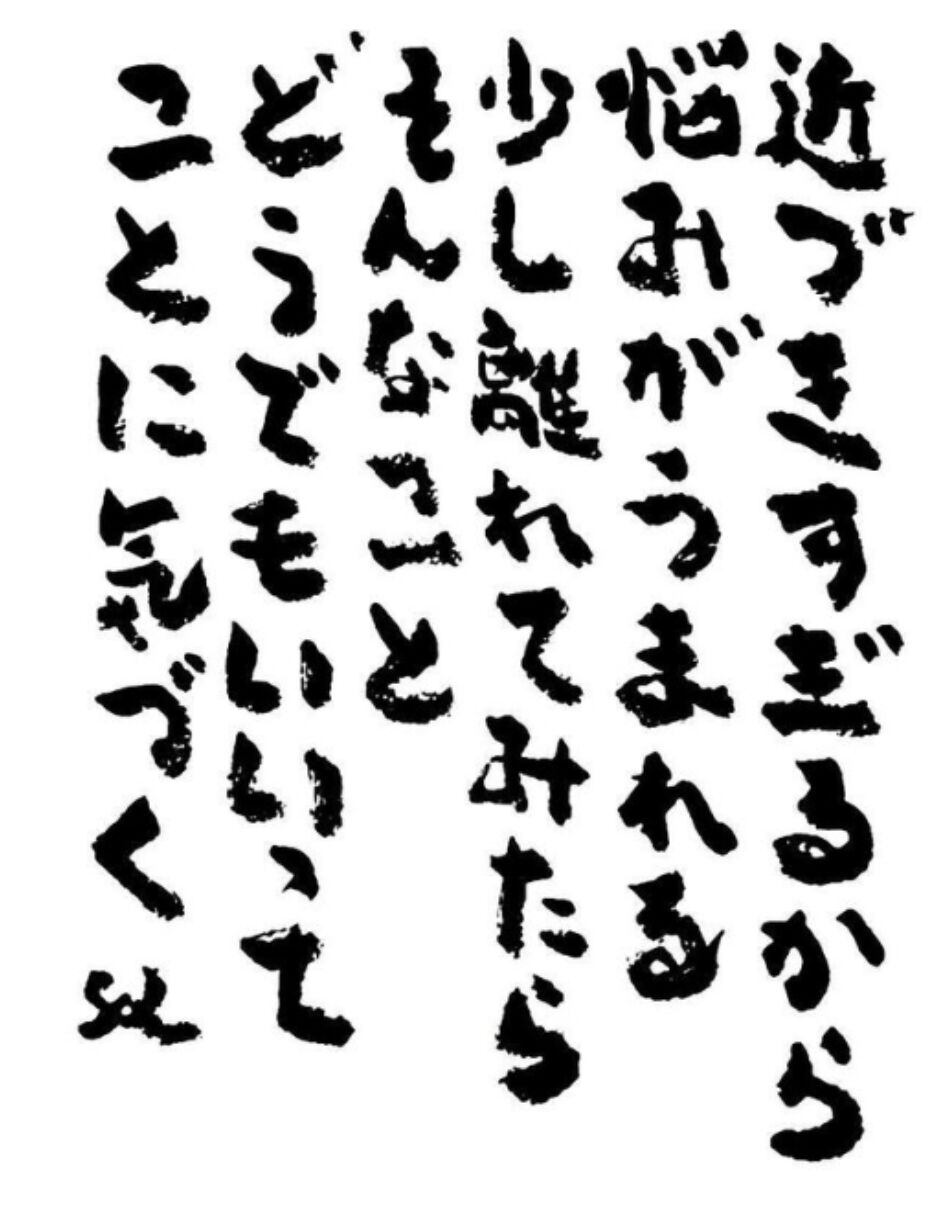 近づきすぎるから
悩みがうまれる
少し離れてみたら
そんなこと
どうでもいいって
ことに気づく